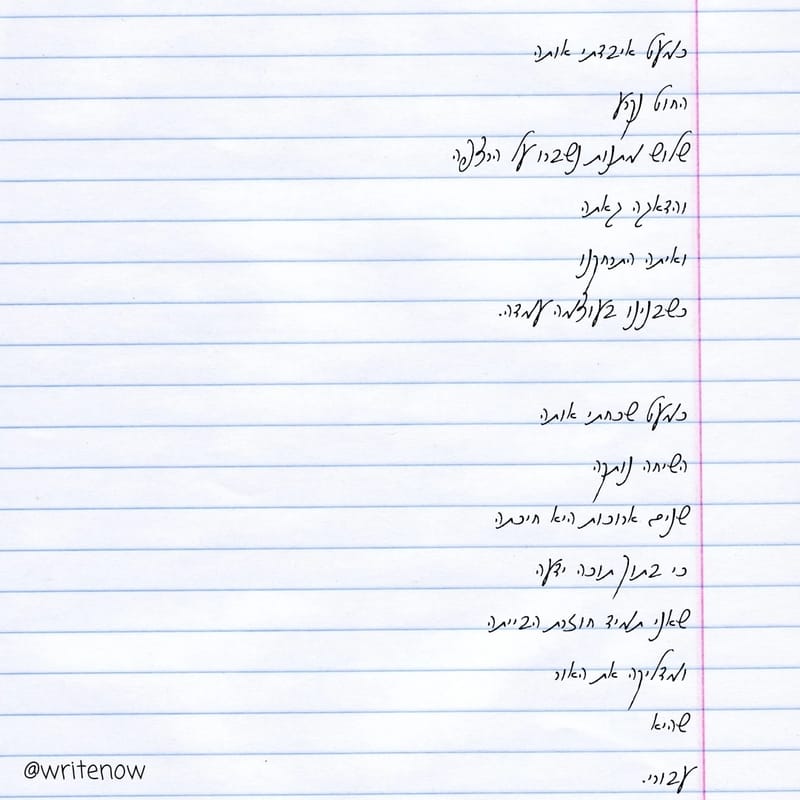 כמעט איבדתי אותה
החוט נקרע
שלוש מתנות נשברו על הרצפה
והדאגה גאתה
ואיתה התרחקנו
כשבנינו בעוצמה עמדה.
כמעט שכחתי אותה
השיחה נותקה
שנים ארוכות היא חיכתה
כי בתוך תוכה ידעה
שאני תמיד חוזרת הבייתה
ומדליקה את האור
שהיא
עבורי.
@writenow